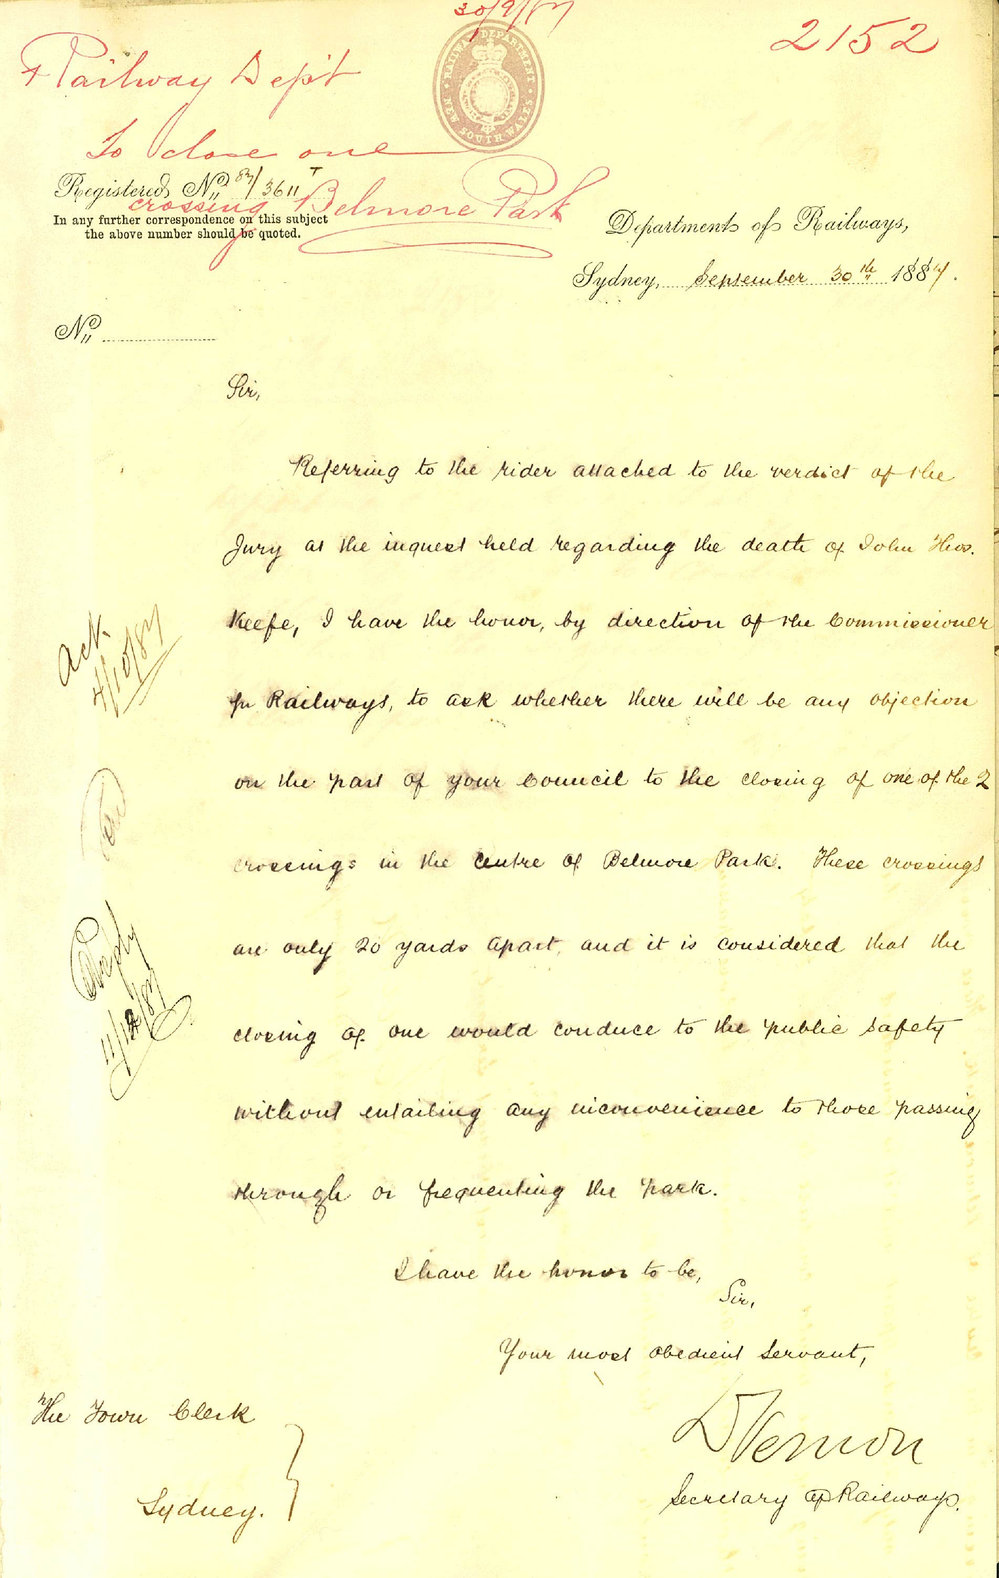 30/9/87
2152
Railway Dept
To close one
crossing Belmore Park
RAILWAY DEPARTMENT
NEW SOUTH WALES
Registered No. 87/3611 T
In any further correspondence on this subject
the above number should be quoted.
Department of Railways,
Sydney, September 30th 1887.
No.
Sir,
Referring to the rider attached to the verdict of the
Jury at the inquest held regarding the death of John Thos.
Keefe, I have the honor, by direction of the Commissioner
for Railways, to ask whether there will be any objection
on the part of your Council to the closing of one of the 2
crossings in the centre of Belmore Park. These crossings
are only 20 yards apart, and it is considered that the
closing of one would conduce to the public safety
without entailing any inconvenience to those passing
through or frequenting the park.
I have the honor to be,
Sir,
Your most obedient servant,
DVernon
Secretary of Railways.
The Town Clerk
Sydney.
Ack.
4/10/87
Reply
11/12/87